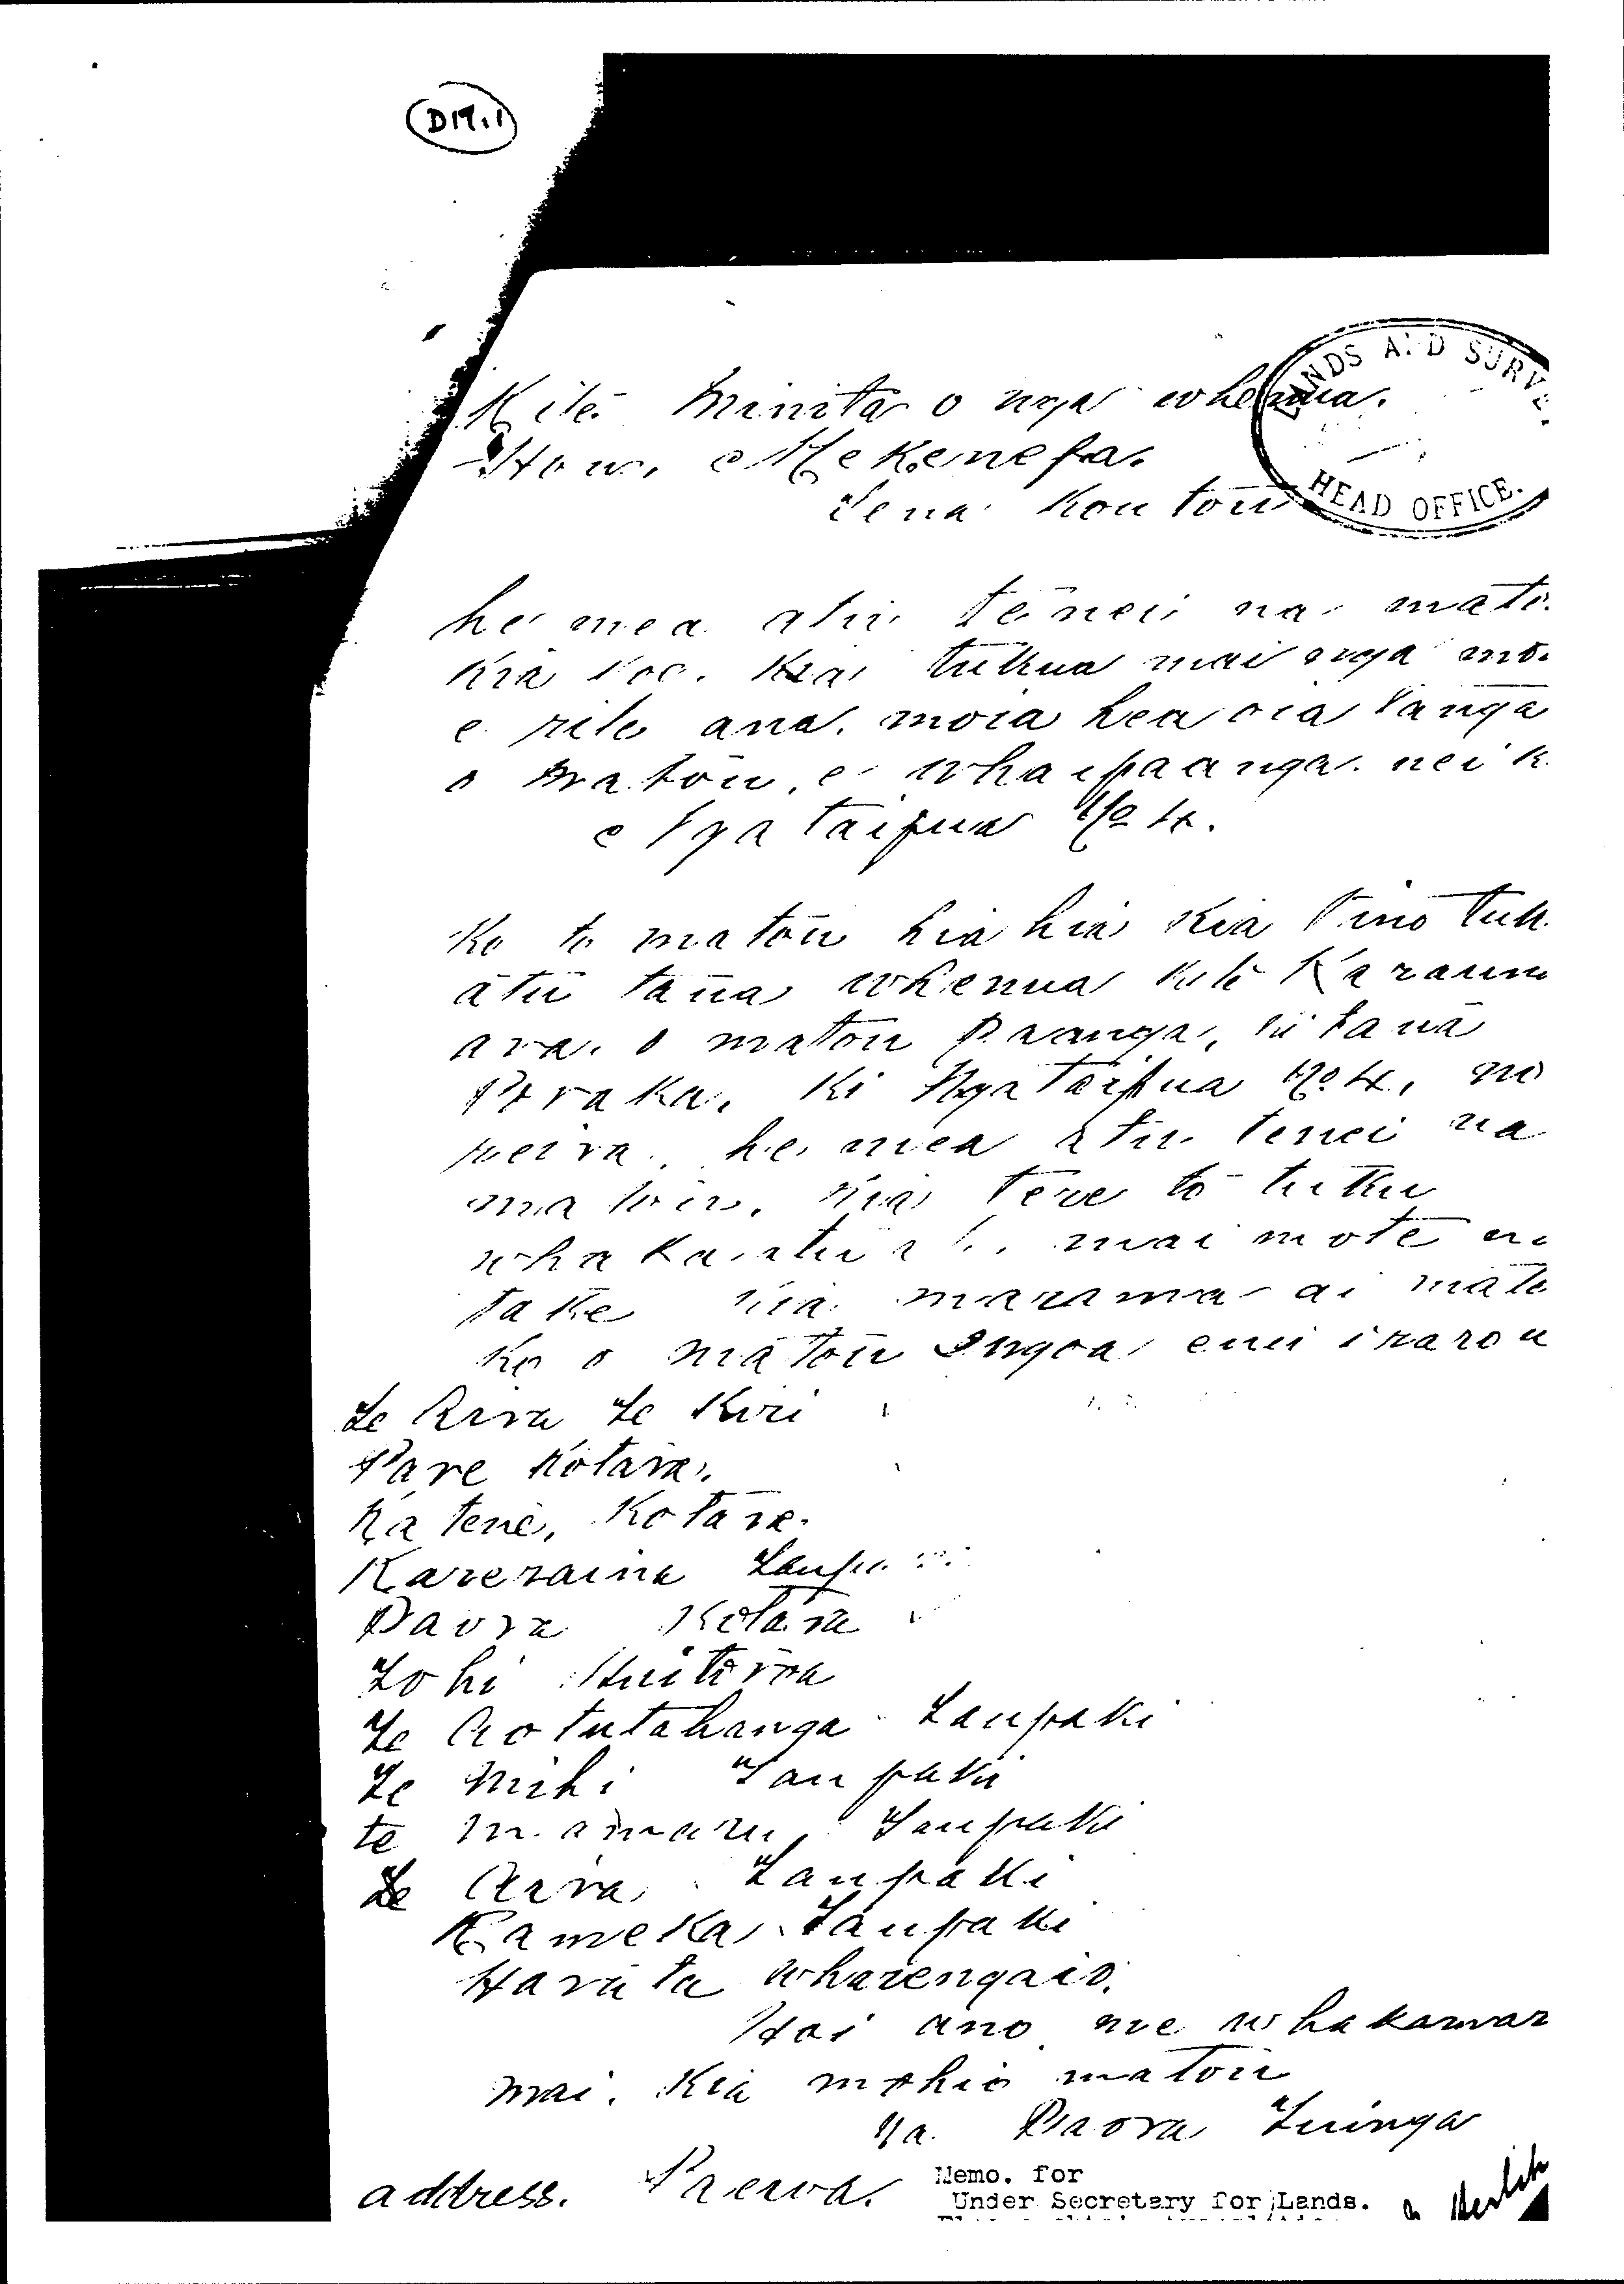 D17.1
LANDS AND SURVEY
HEAD OFFICE.
Kite Minita o nga whenua.
Hon, e Mekenefa.
Tena Koutou
he mea atu tenei na mato
Kia koe. Kia tukua mai nga mo
e rite ana. moia hea oia tanga
o matou, e whaipaanga nei k
e Nga taipua No 4.
Ko to matou hia hia Kia tino tuk
atu taua whenua kite Karaun
ara. o matou paanga, ki taua
Poraka, ki Nga Taipua No. 4, no
reira he mea atu tenei na
matou, kia tere to tuku
whakaatu mai mote
take kia marama ai mato
Ko o matou ingoa enei i raro u
Te Arva Te Kiri
Pare Kotara.
Katene, Kotara.
Kareraina Taupa
Paora Kotara
Tohi Huitoroa
Te Aotutahanga Taupaki
Te Mihi Taupaki
te mamaru, Taupaki
Te Arva Taupaki
Rameka Taupaki
Haruta wharengaio.
Hoi ano me whakamar
mai. Kia mohio matou
Na Paora Tuinga
address. Paerva.
Memo. for
Under Secretary for Lands.